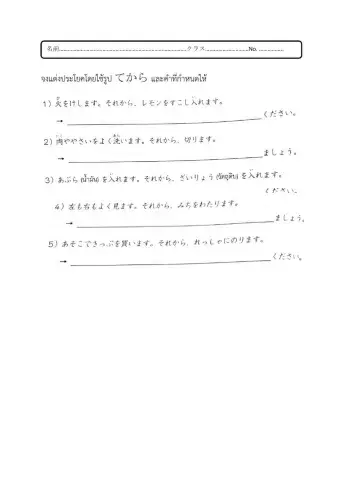 名前...........................................................................クラス..........................No. ................
จงแต่งประโยคโดยใช้รูป てから และคำที่กำหนดให้
1）火をけします。それから、レモンをすこし入れます。
→ ください。
2）肉ややさいをよく洗います。それから、切ります。
→ ましょう。
3）あぶら (น้ำมัน) を入れます。それから、ざいりょう (วัตถุดิบ) を入れます。
ください。
4）左も右もよく見ます。それから、みちをわたります。
→ ましょう。
5）あそこできっぷを買います。それから、れっしゃにのります。
→ ください。